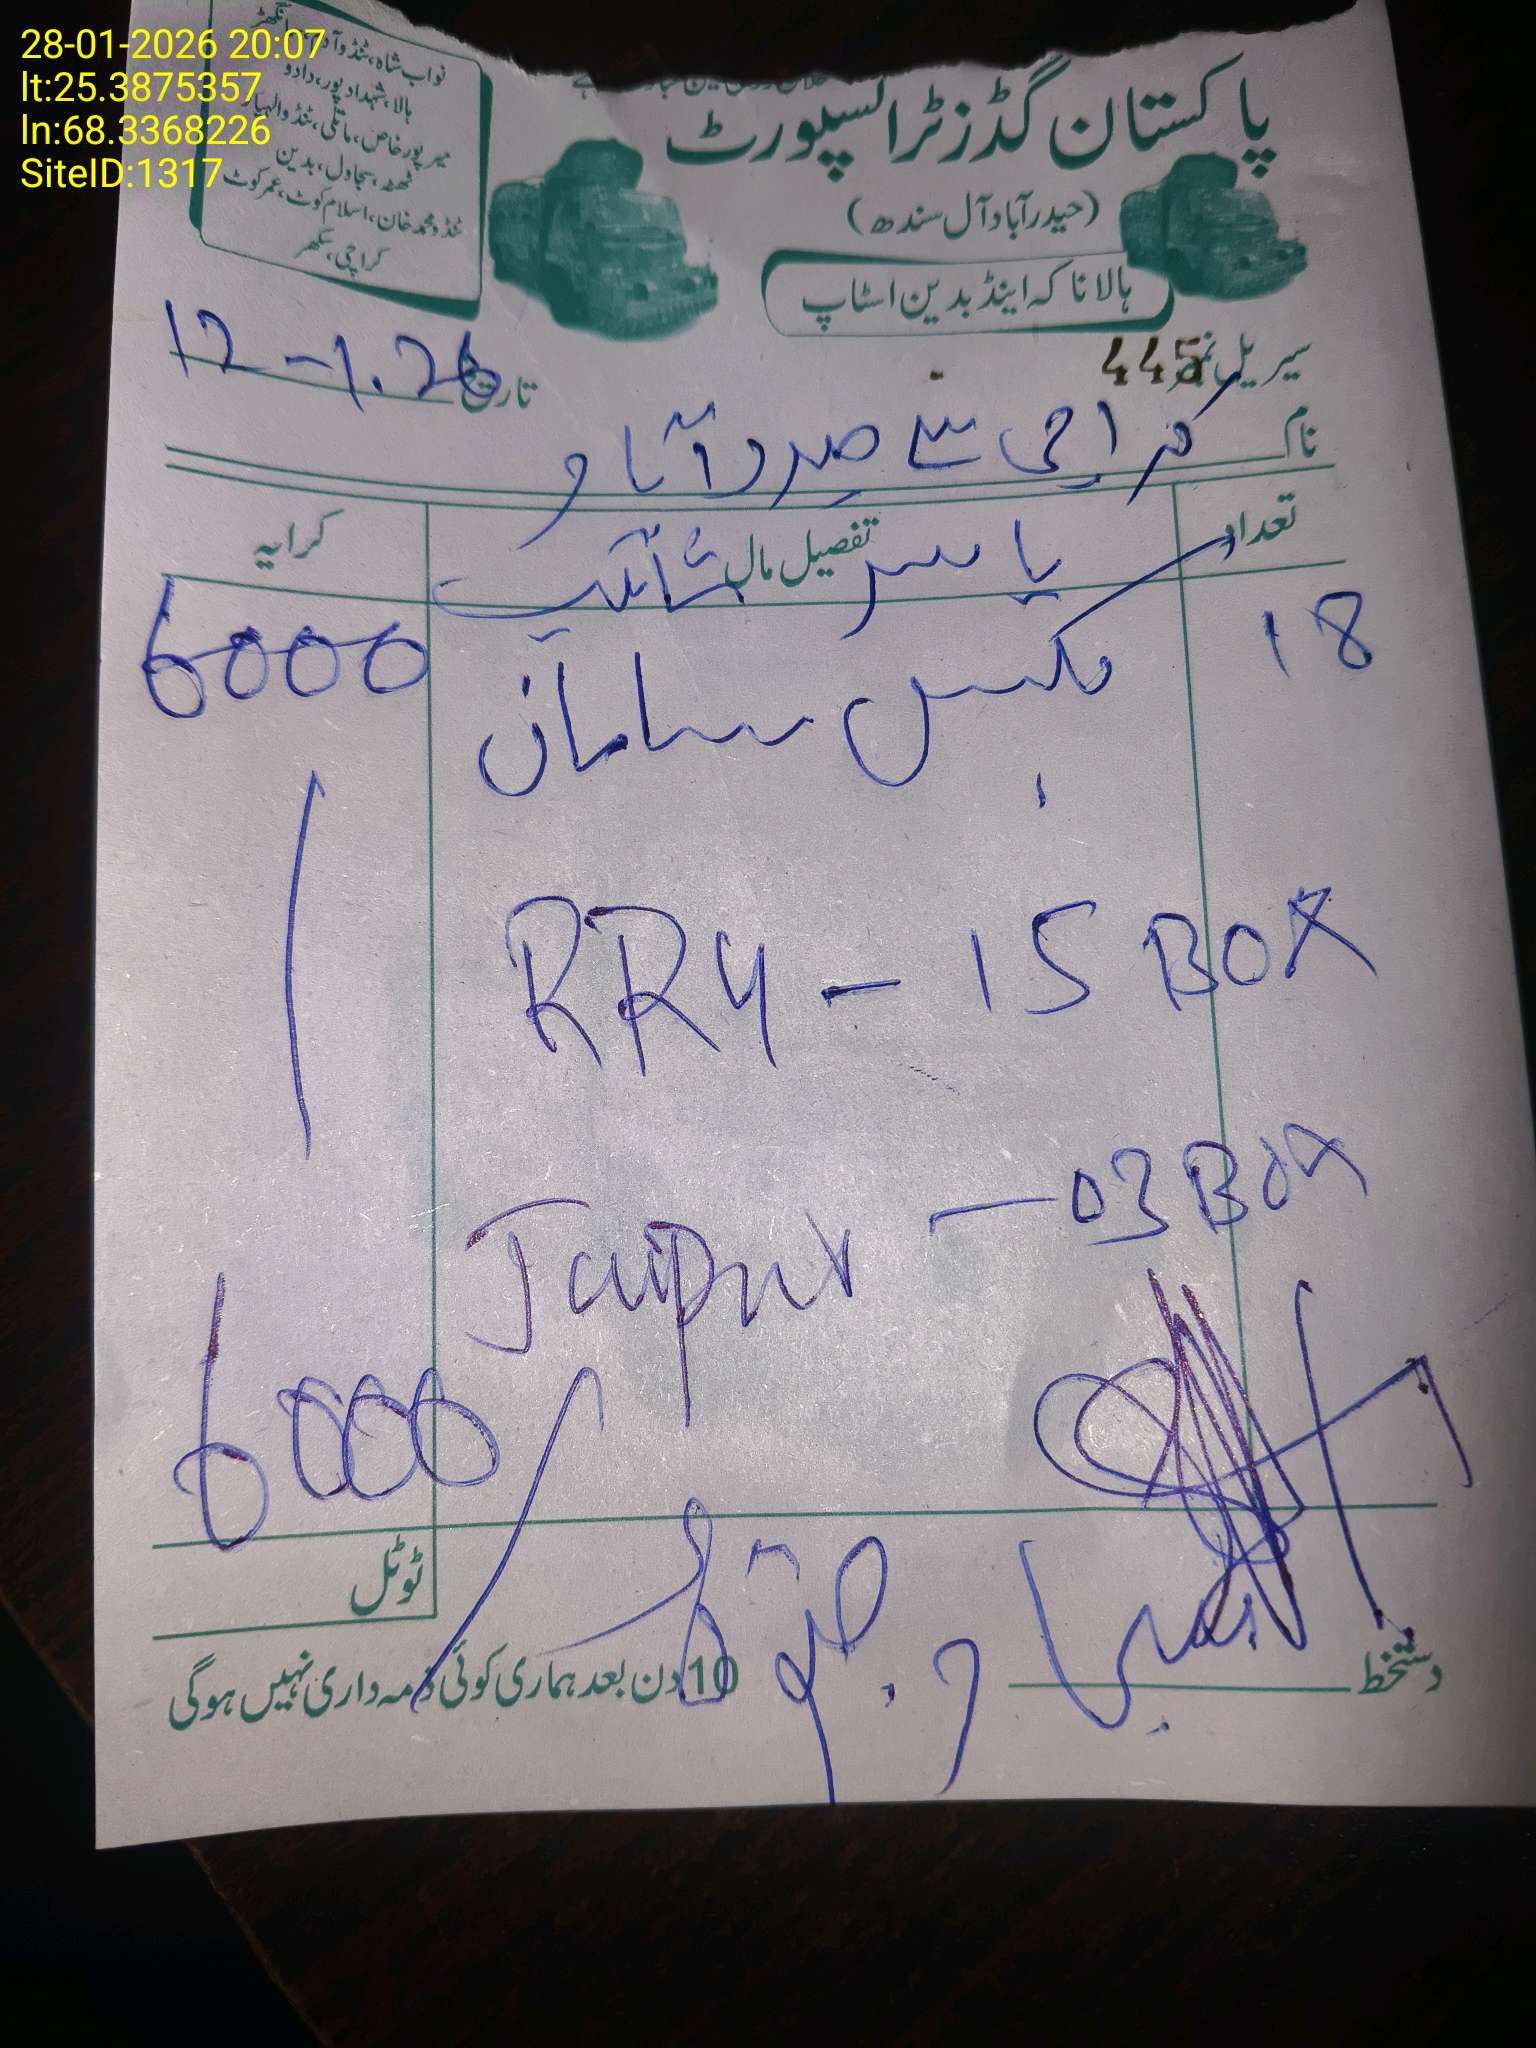 28-01-2026 20:07
lt:25.3875357
ln:68.3368226
SiteID:1317
نواب شاہ، ٹنڈوآدم
ہالا، شہدادپور، دادو
میرپورخاص، ماتلی، ٹنڈوالہیار
ٹھٹہ، سجاول، بدین
ٹنڈومحمدخان، اسلام کوٹ، عمرکوٹ
کراچی، سکھر
پاکستان گڈز ٹرانسپورٹ
(حیدرآباد و آل سندھ)
ہالاناکہ اینڈ بدین اسٹاپ
سیریل نمبر 445
تاریخ 12-1.26
نام کراچی سے حیدرآباد
تعداد تفصیل مال کرایہ
یاسر
18 بکس سامان 6000
RRY - 15 BOX
Jaipur - 03 BOX
6000
ٹوٹل
دستخط
10 دن بعد ہماری کوئی ذمہ داری نہیں ہوگی